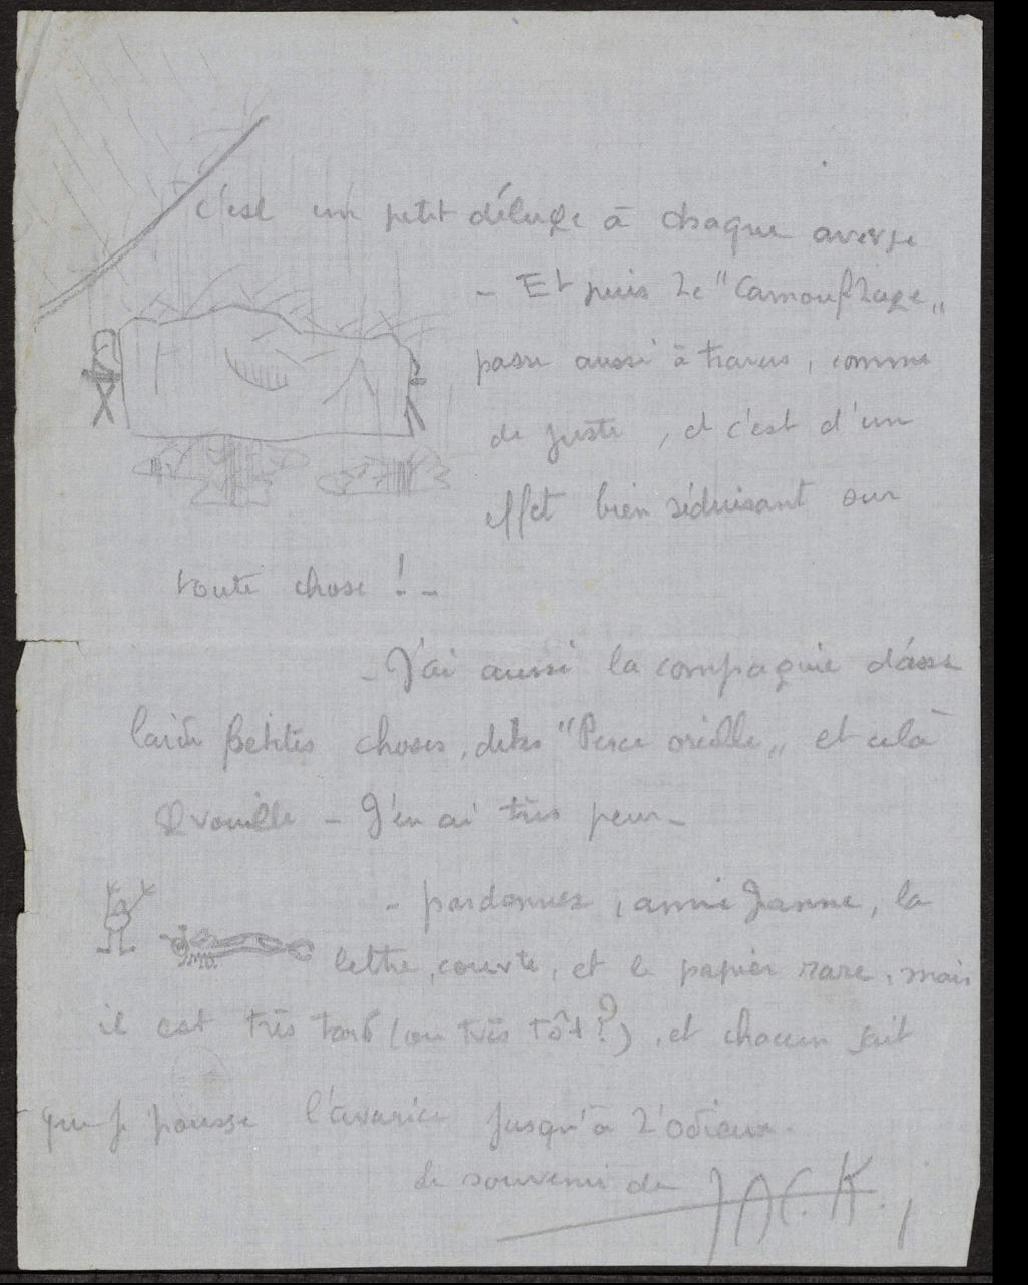 c'est un petit déluge à chaque averse
- Et puis le "Camouflage"
passe aussi à travers, comme
de juste, et c'est d'un
effet bien séduisant sur
toute chose ! -
- J'ai aussi la compagnie d'assez
laides petites choses, dites "Perce oreille" et celà
grouille - J'en ai très peur -
- pardonnez, amie Jeanne, la
lettre, courte, et le papier rare, mais
il est très tard (ou très tôt ?), et chacun sait
que je pousse l'avarice jusqu'à l'odieux.
Le souvenir de JACK.